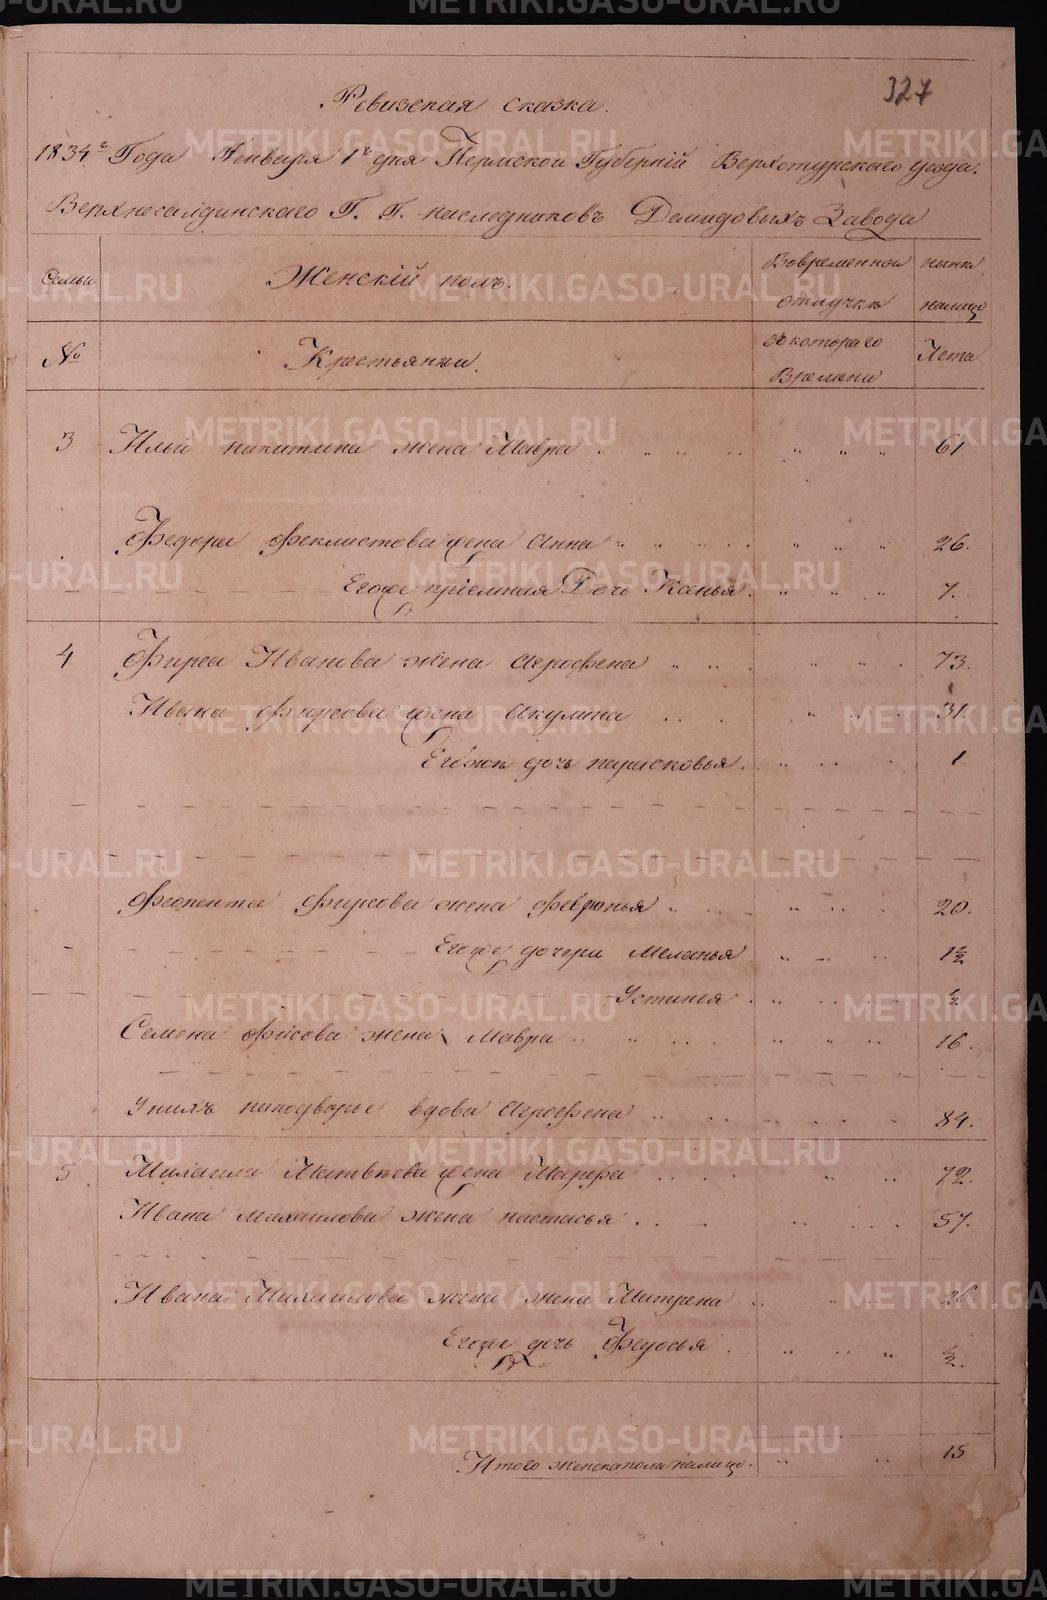 327
Ревизская сказка.
1834го Года Генваря 1го дня Пермской Губернiй Верхотурскаго уезда.
Верхнесалдинскаго Г. Г. наследниковъ Демидовыхъ Завода
Семьи
Женскiй полъ.
Вовременной отлучке
ныне налицо
№
Крестьянки.
съ котораго Времени
Лета
3 Ильи никитина жена Мавра 61
Федора феклистова жена Анна 26.
Егоже прiемная Дочь Ксенья. 7.
4 Фирса Иванова жена Агрофена 73.
Ивана фирсова жена Акулина 31.
Егоже дочь парасковья. 1
Феопента Фирсова жена Февронья 20.
Егоже дочери Меланья 1½
Устинья. ½
Семена фисова жена Мавра 16.
Унихъ наподворье вдова Агрофена 84.
5 Михаила Матвеева жена Марфа 72.
Ивана михаилова жена настасья 57.
Ивана Михаилова жена жена Матрена 26
Егоже дочь Федосья ½.
Итого женска пола налицо. 15
METRIKI.GASO-URAL.RU